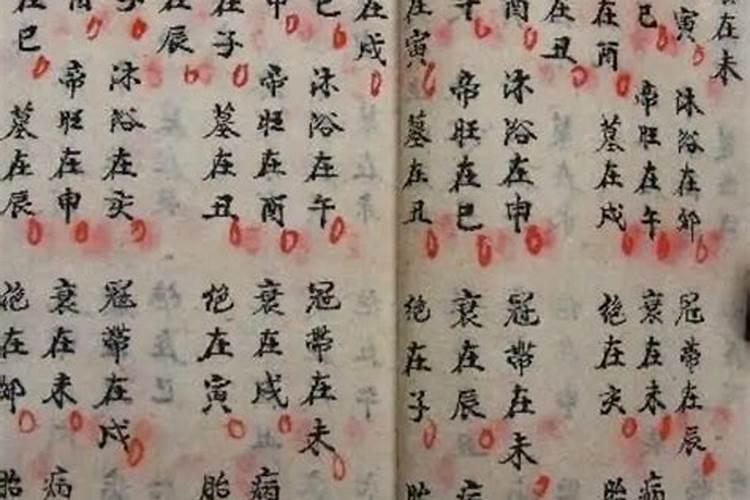 在未
寅
巳
在酉
在丑
酉
在寅
在戌
巳
申
在子
在辰
在巳
沐浴在卯
帝旺在午
墓在戌
沐浴在申
帝旺在巳
墓在丑
沐浴在午
帝旺在酉
墓在丑
沐浴在亥
帝旺在申
墓在辰
冠帶在辰
衰在未
絶在亥
冠帶在未
衰在辰
絶在子
冠帶在未
衰在戌
絶在寅
冠帶在戌
衰在未
絶在卯
病
胎
病
胎
病
胎
病
胎